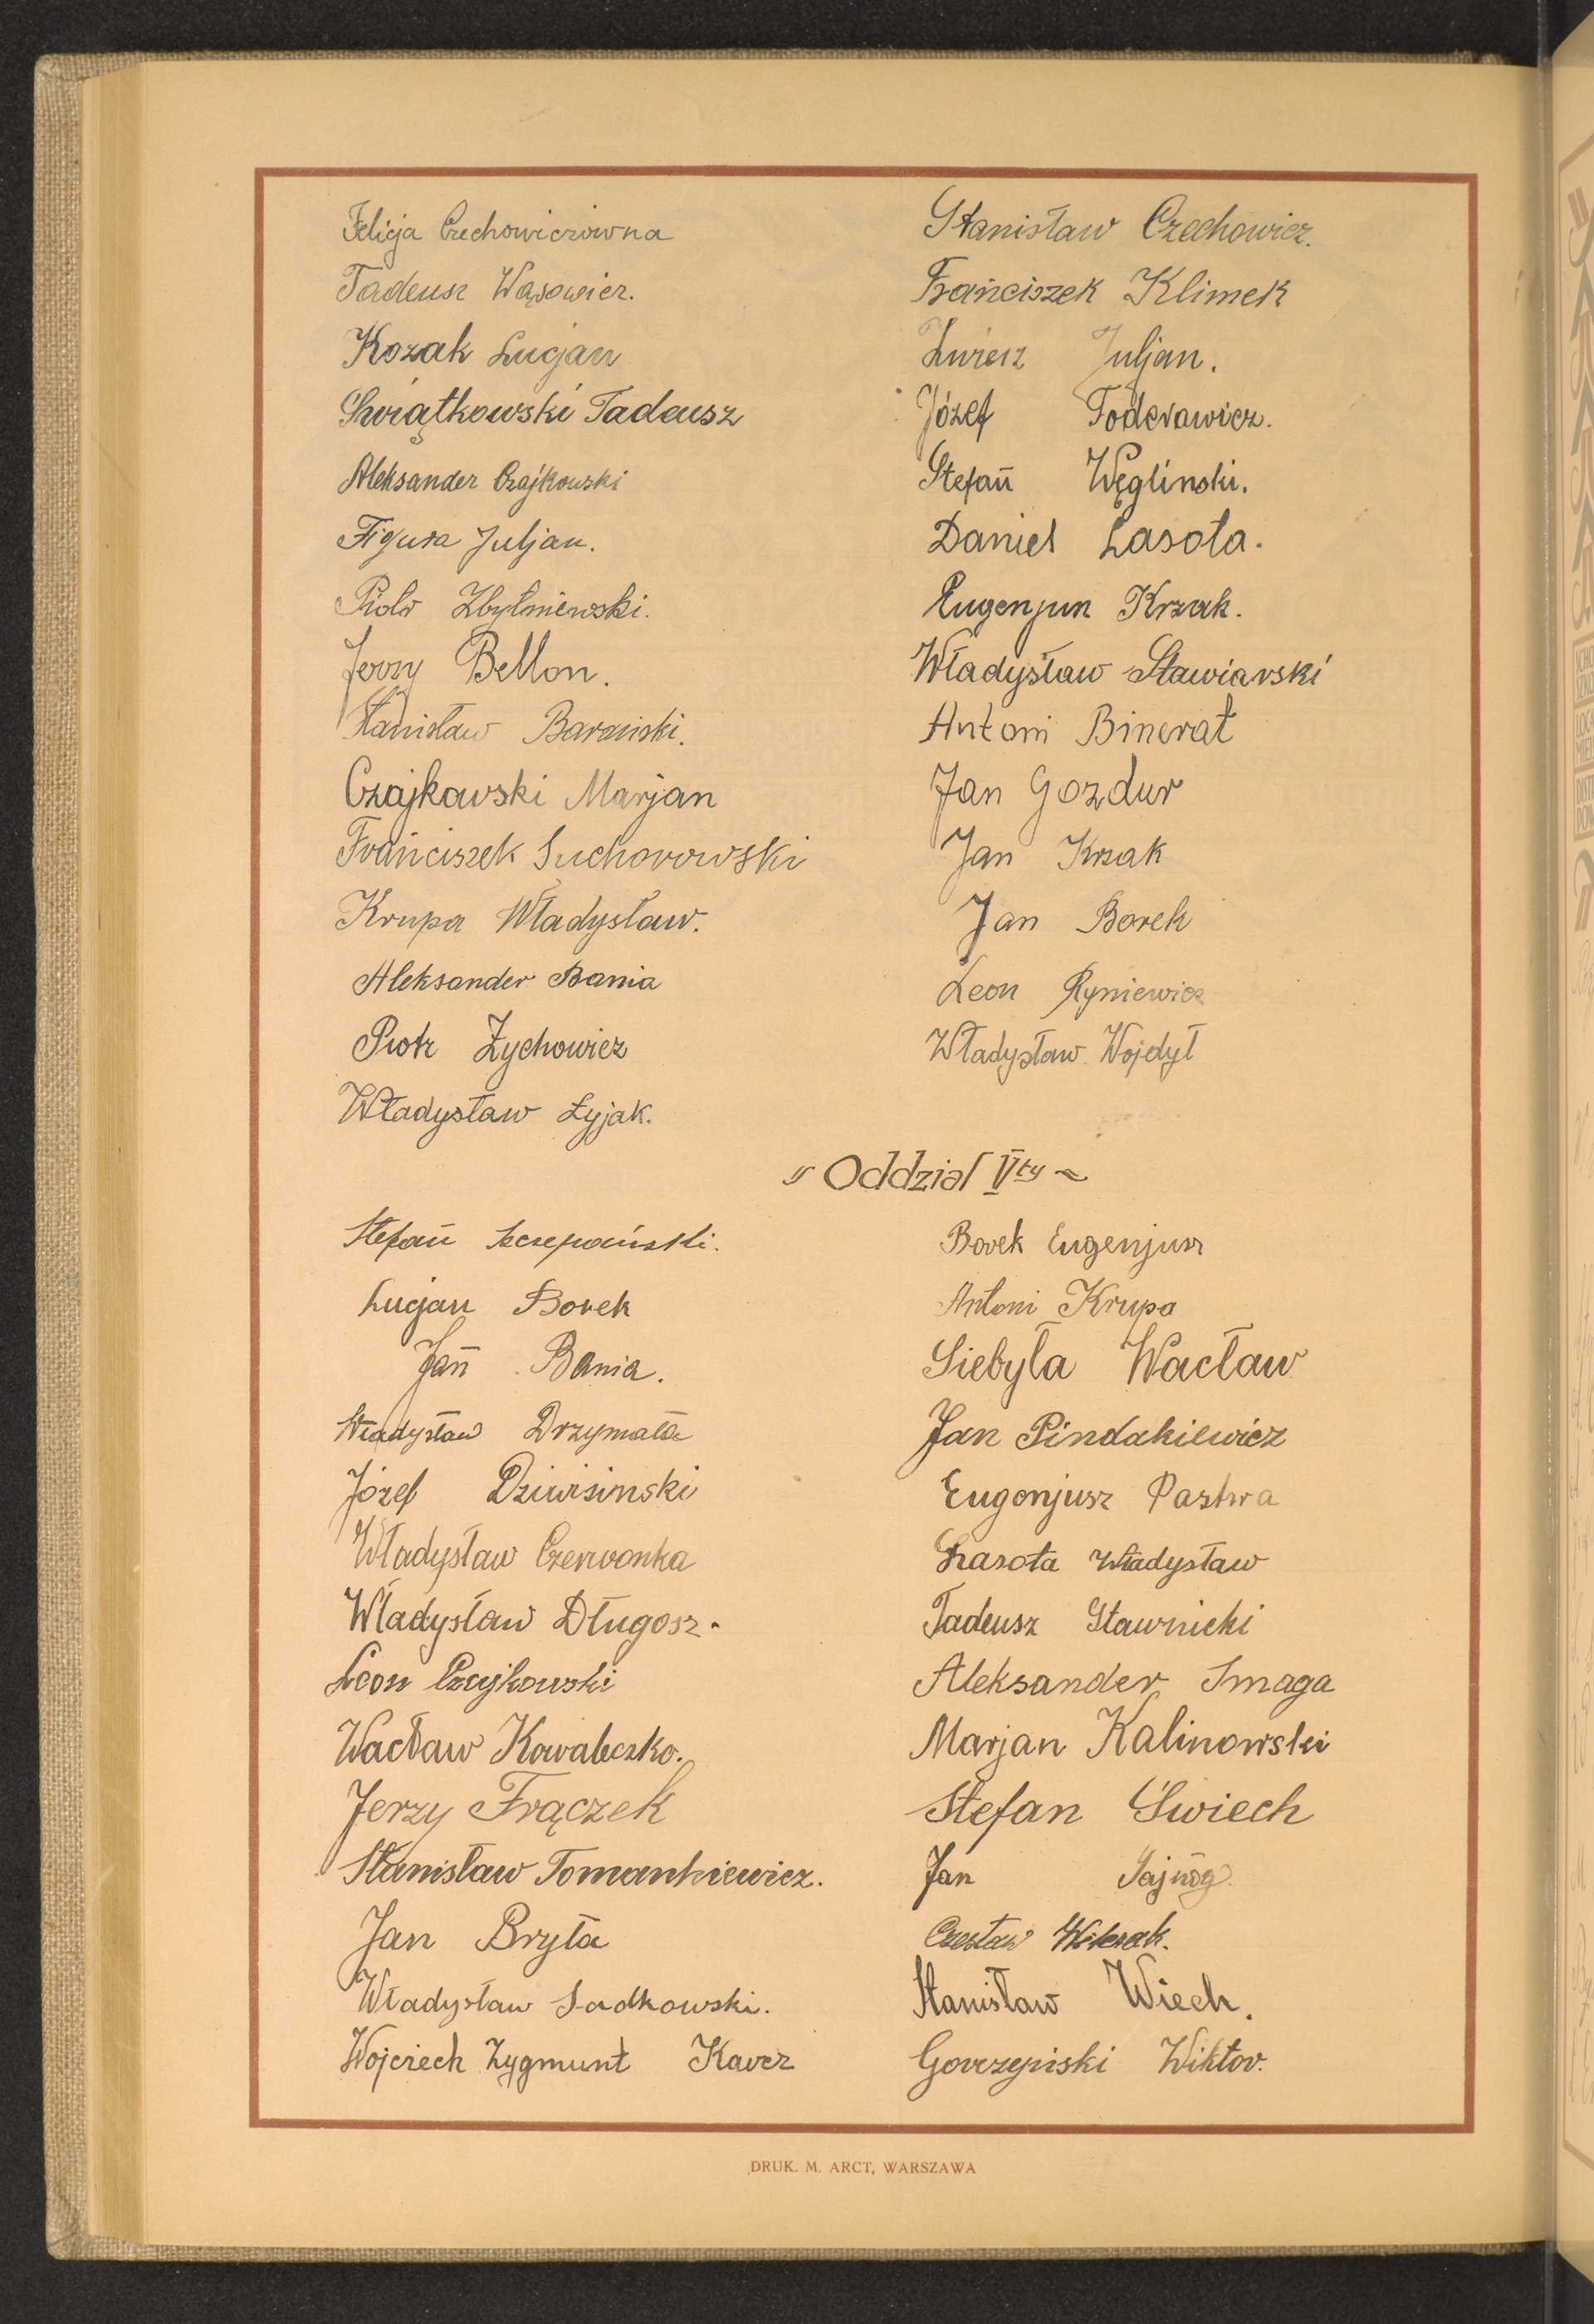 Felicja Czechowiczówna
Tadeusz Wąsowicz.
Kozak Lucjan
Świątkowski Tadeusz
Aleksander Czajkowski
Figura Juljan.
Piotr Zbytniewski.
Jerzy Bellon.
Stanisław Barański.
Czajkowski Marjan
Franciszek Suchorowski
Krupa Władysław.
Aleksander Bania
Piotr Żychowicz
Władysław Łyjak.
Stanisław Czechowicz.
Franciszek Klimek
Juljan.
Józef Toderawicz.
Stefan Węglinski.
Daniel Lasota.
Eugenjun Krzak.
Władysław Sławiarski
Antoni Binerat
Jan Gozdur
Jan Krzak
Jan Borek
Leon Ryniewicz
Władysław Wojdył
„Oddział Vty"
Stefan Szczepański.
Lucjan Borek
Jan Bania.
Władysław Drzymała
Józef Dziwisinski
Władysław Czerwonka
Władysław Długosz.
Leon Czajkowski
Wacław Kowaleczko.
Jerzy Frączek
Stanisław Tomankiewicz.
Jan Bryła
Władysław Sadkowski.
Wojciech Zygmunt Karcz
Borek Eugenjusz
Antoni Krupa
Siebyła Wacław
Jan Pindakiewicz
Eugenjusz Pastwa
Lasota Władysław
Tadeusz Sławnicki
Aleksander Smaga
Marjan Kalinowski
Stefan Świech
Jan Sajnóg.
Czesław
Stanisław Wiech.
Gorczyński Wiktor.
DRUK. M. ARCT, WARSZAWA